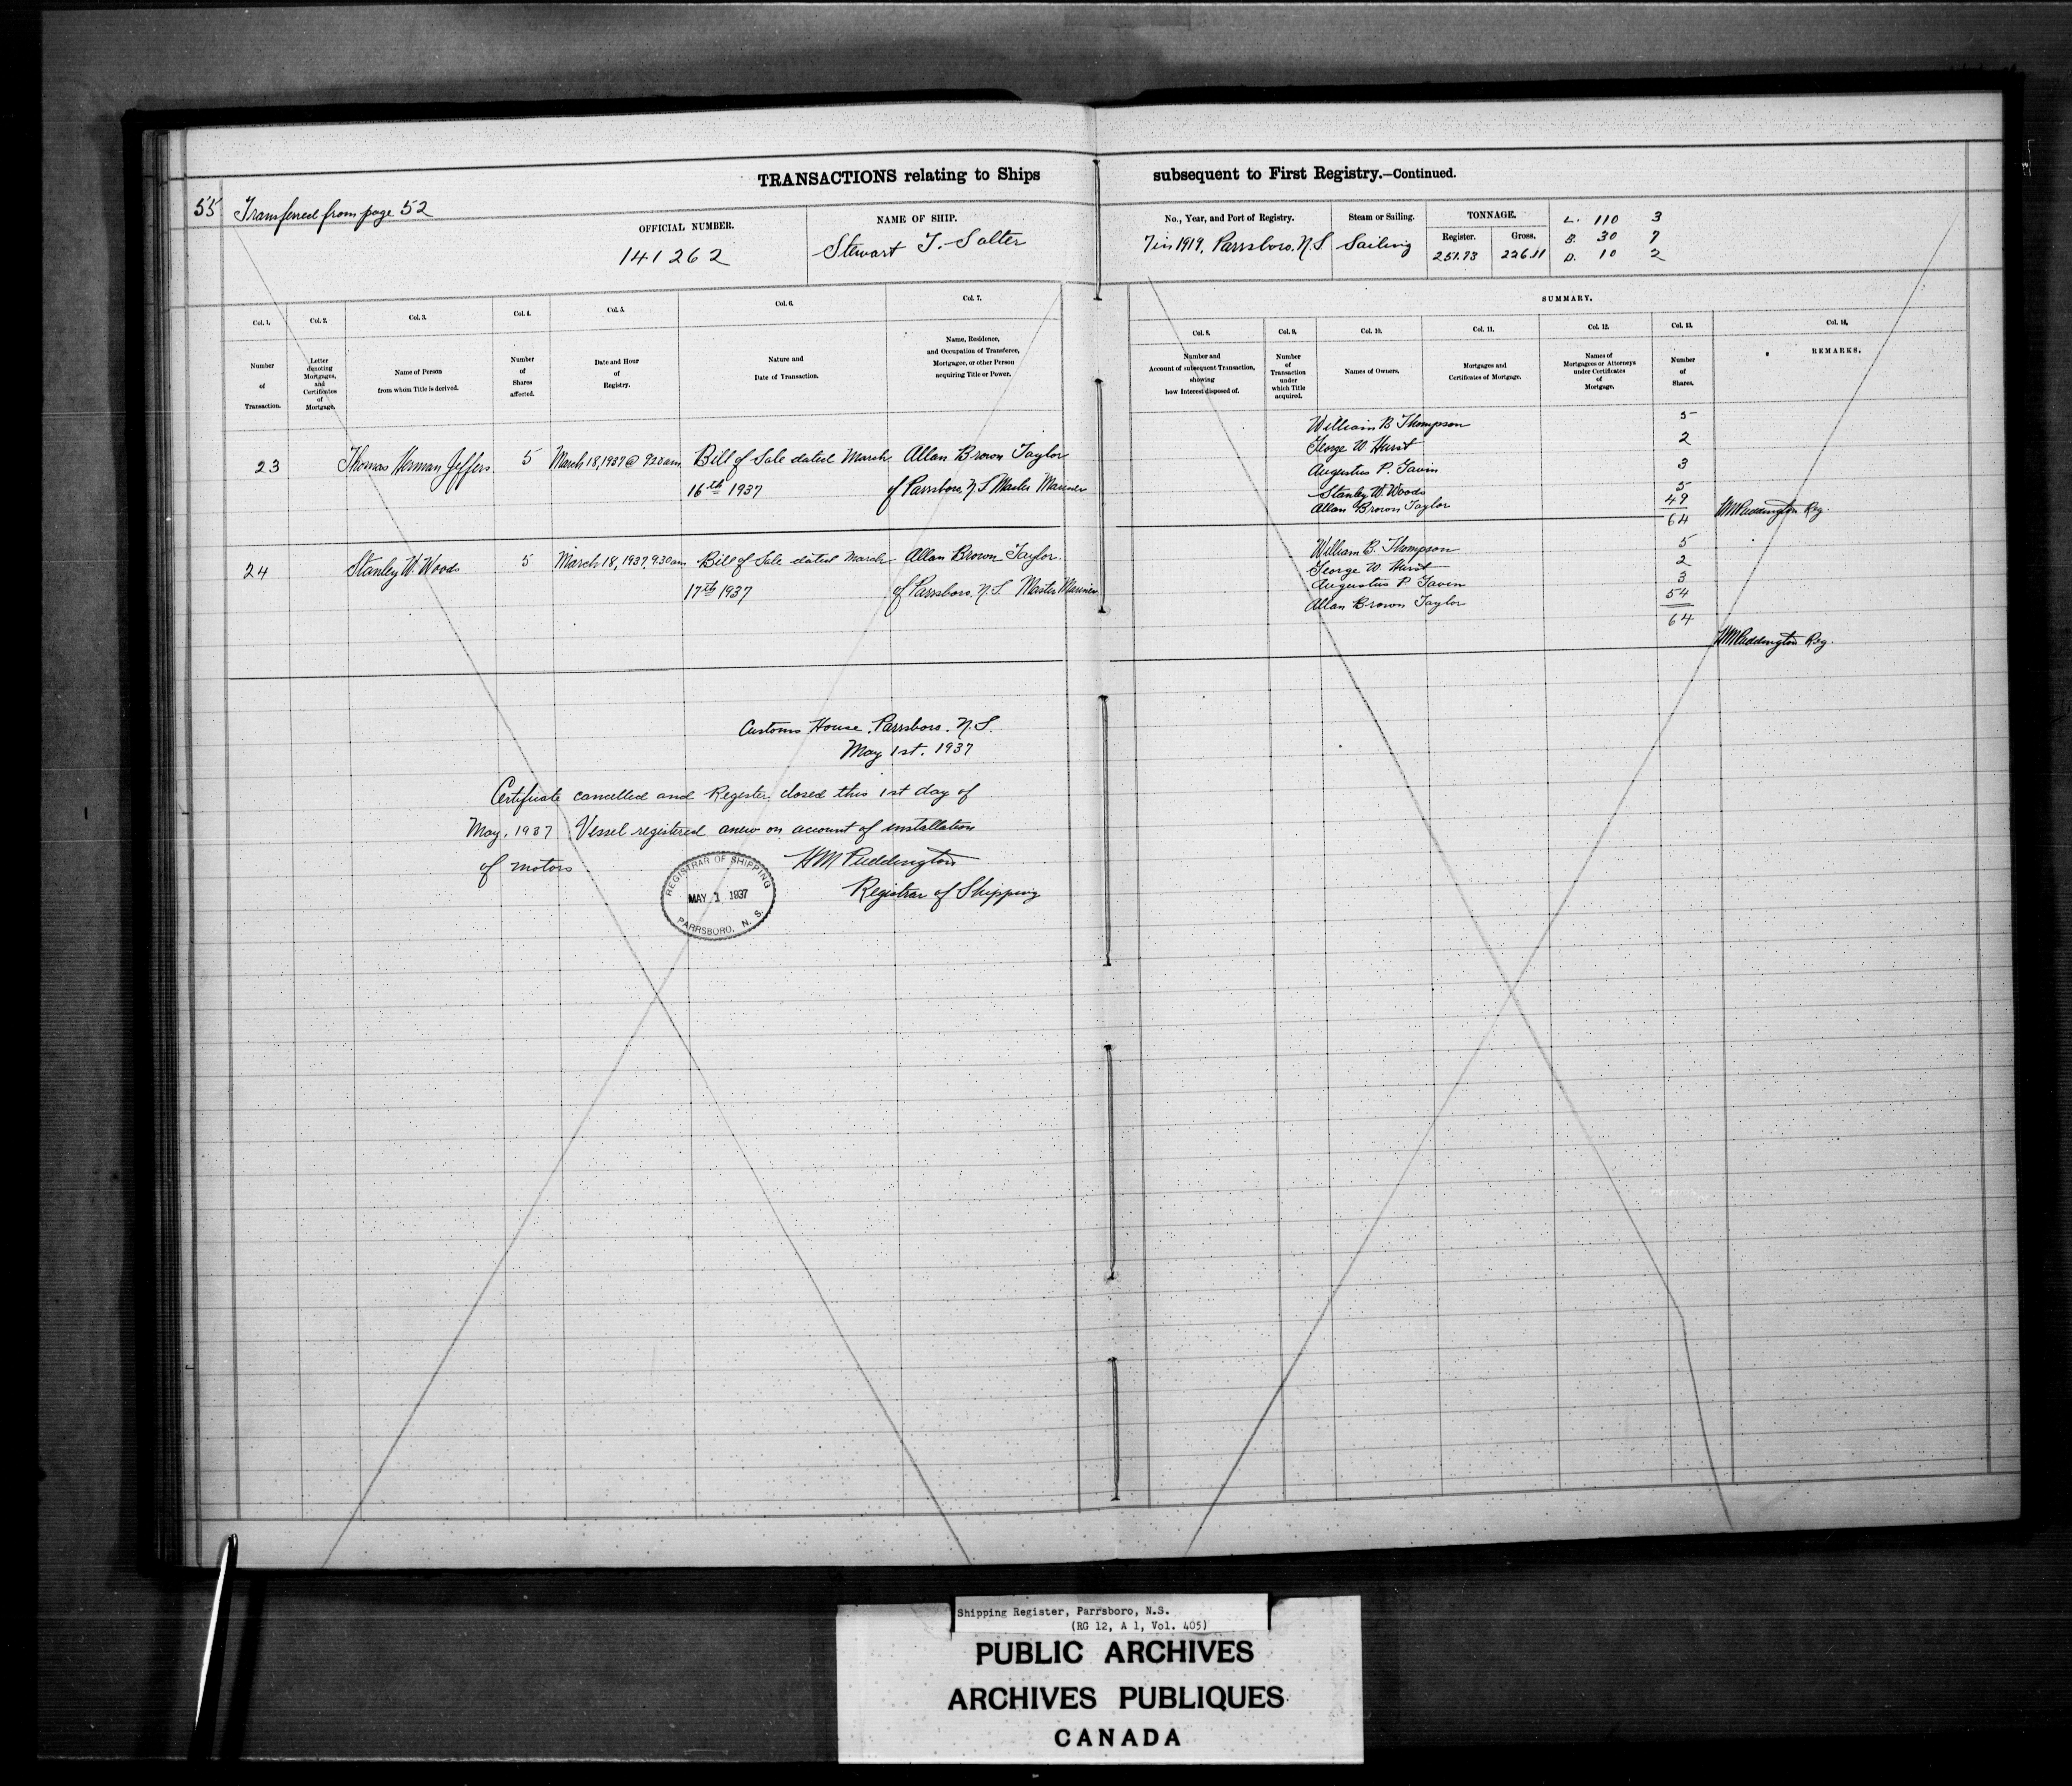 TRANSACTIONS relating to Ships subsequent to First Registry.—Continued.
55 Transferred from page 52
OFFICIAL NUMBER.
141262
NAME OF SHIP.
Stewart T. Salter
No., Year, and Port of Registry.
7 in 1919, Parrsboro, N.S
Steam or Sailing.
Sailing
TONNAGE.
Register.
251.73
Gross.
226.11
L. 110 3
B. 30 7
D. 10 2
SUMMARY.
Col. 1. Col. 2. Col. 3. Col. 4. Col. 5. Col. 6. Col. 7. Col. 8. Col. 9. Col. 10. Col. 11. Col. 12. Col. 13. Col. 14.
Number
of
Transaction.
Letter
denoting
Mortgages,
and
Certificates
of
Mortgage.
Name of Person
from whom Title is derived.
Number
of
Shares
affected.
Date and Hour
of
Registry.
Nature and
Date of Transaction.
Name, Residence,
and Occupation of Transferee,
Mortgagee, or other Person
acquiring Title or Power.
Number and
Account of subsequent Transaction,
showing
how Interest disposed of.
Number
of
Transaction
under
which Title
acquired.
Names of Owners.
Mortgages and
Certificates of Mortgage.
Names of
Mortgagees or Attorneys
under Certificates
of
Mortgage.
Number
of
Shares.
REMARKS.
23 Thomas Herman Jeffers 5 March 18, 1937 @ 920 am Bill of Sale dated March Allan Brown Taylor
16th 1937 of Parrsboro, N S Master Mariner
William B Thompson 5
George W Hurst 2
Augustus P. Gavin 3
Stanley W. Woods 5
Allan Brown Taylor 49
64 HM Puddington Reg.
24 Stanley W. Woods 5 March 18, 1937, 9.30 am Bill of Sale dated March Allan Brown Taylor
17th 1937 of Parrsboro, N.S. Master Mariner
William B. Thompson 5
George W. Hurst 2
Augustus P Gavin 3
Allan Brown Taylor 54
64
HM Puddington Reg.
Customs House, Parrsboro, N.S.
May 1st, 1937
Certificate cancelled and Register closed this 1st day of
May, 1937. Vessel registered anew on account of installation
of motors.
HM Puddington
Registrar of Shipping
REGISTRAR OF SHIPPING
MAY 1 1937
PARRSBORO, N. S.
Shipping Register, Parrsboro, N.S.
(RG 12, A 1, Vol. 405)
PUBLIC ARCHIVES
ARCHIVES PUBLIQUES
CANADA